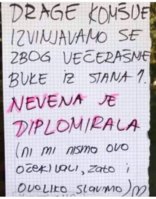 DRAGE KOMŠIJE
IZVINJAVAMO SE
ZBOG VEČERAŠNJE
BUKE IZ STANA 7.
NEVENA JE
DIPLOMIRALA
(NI MI NISMO OVO
OČEKIVALI, ZATO I
OVOLIKO SLAVIMO)